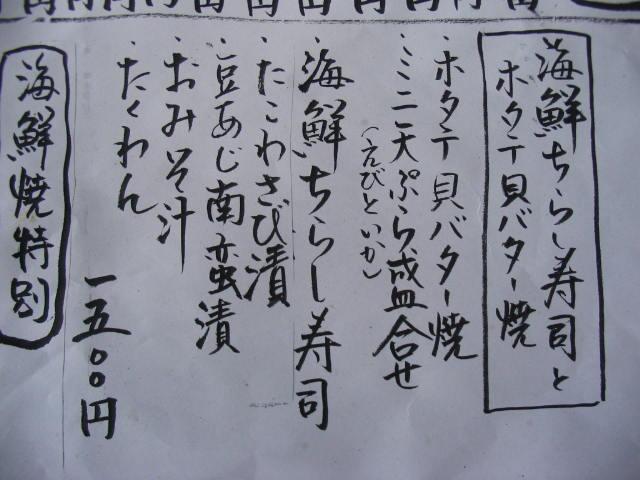 海鮮ちらし寿司と
ホタテ貝バター焼
・ホタテ貝バター焼
・ミニ天ぷら盛合せ
(えびといか)
・海鮮ちらし寿司
・たこわさび漬
・豆あじ南蛮漬
・おみそ汁
・たくわん
一五〇〇円
海鮮焼特別